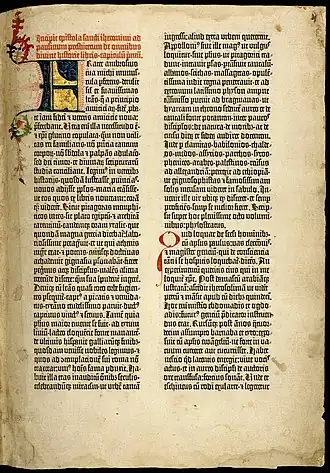 Incipit epistola sancti iheronimi ad
paulinum presbiterum de omnibus
divine historie libris. capitulum primum.
Frater ambrosius
tua michi munus-
cula perferens. detulit
simul et suavissimas
litteras. que a principio
amiciciarum. fidem proba-
te iam fidei et veteris amicicie nova
preferebant. Vera enim illa necessitudo est.
et xpristi glutino copulata. quam non utili-
tas rei familiaris. non presencia tantum
corporum. non subdola et palpans adulacio.
sed dei timor. et divinarum scripturarum
studia conciliant. Legimus in veteribus
historiis. quosdam lustrasse provincias.
novos adisse populos. maria transis-
se. ut eos quos ex libris noverant: coram
quoque viderent. Sicut pitagoras memphi-
ticos vates. sic plato egiptum. et archita
tarentinum. eandemque oram ytalie. que
quondam magna grecia dicebatur: labo-
riosissime peragravit. et ut qui athenis
magister erat. et potens. cuiusque doctrinas
achademie gignasia personabant. fieret
peregrinus atque discipulus. malens aliena
verecunde discere: quam sua impudenter
ingerere. Denique cum litteras quasi toto orbe
fugientes persequitur. captus a piratis et venun-
datus. tyranno crudelissimo paruit.
captivus vinctus et servus. Tamen quia
philosophus maior emente se fuit. ad tytum
livium. lacteo eloquentie fonte manantem.
de ultimis hispanie galliarumque finibus.
quosdam venisse nobiles legimus. et
quos ad contemplacionem sui roma non
traxerat: unius hominis fama perduxit. Ha-
buit illa etas inauditum omnibus seculis.
celebrandumque miraculum. ut urbem tantam
ingressi: aliud extra urbem quererent.
Apollonius sive ille magus ut vulgus
loquitur. sive philosophus ut pitagorici tra-
dunt. intravit persas. pertransivit caucasum.
albanos. scithas. massagetas. opulen-
tissima indie regna penetravit. et
ad extremum latissimo phison amne
transmisso pervenit ad bragmanas. ut
hyarcam in throno sedentem aureo. et de
tantali fonte potantem. inter paucos
discipulos. de natura. de moribus. ac de
cursu dierum et siderum audiret docentem.
Inde per elamitas. babilonios. chalde-
os. medos. assirios. parthos. syros.
phenices. arabes. palestinos. reversus ad
alexandriam. perrexit ad ethiopiam.
ut gignosophistas et famosissimam
solis mensam videret in sabulo. In-
venit ille vir ubique quod disceret. et semper
proficiens: semper se melior fieret. Scrip-
sit super hoc plenissime octo volumi-
nibus: phylostratus.
Quid loquar de seculi hominibus.
cum apostolus paulus. vas electionis.
et magister gentium. qui de consciencia
tanti in se hospitis loquebatur. dicens. An
experimentum queritis eius qui in me
loquitur xpristus. Post damascum arabiamque
lustratam: ascendit iherosolimam ut vide-
ret petrum. et mansit apud eum diebus quindecim.
Hoc enim misterio ebdomadis et ogdo-
adis: futurus gentium predicator instruen-
dus erat. Rursumque post annos quatuor-
decim assumpto barnaba et tyto: expo-
suit cum apostolis ewangelium. ne forte in va-
cuum curreret aut cucurrisset. Habet
nescio quid latentis energie: vive vocis
actus. et in aures discipuli de auctoris
ore transfusa: forcius sonat. Unde et
eschines cum rodi exularet. et legeretur